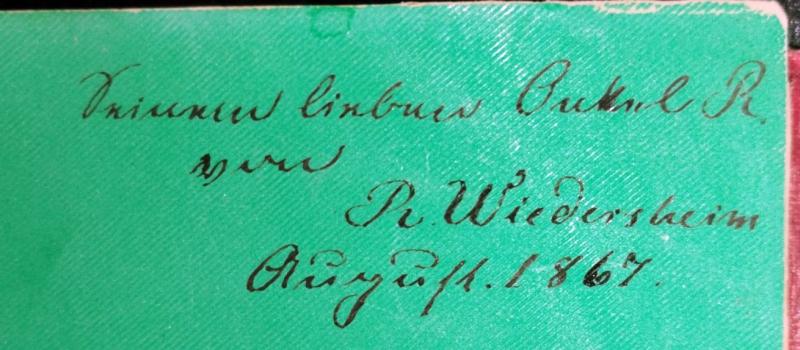 Seinem lieben Onkel R.
von
R. Wiedersheim
August. 1867.